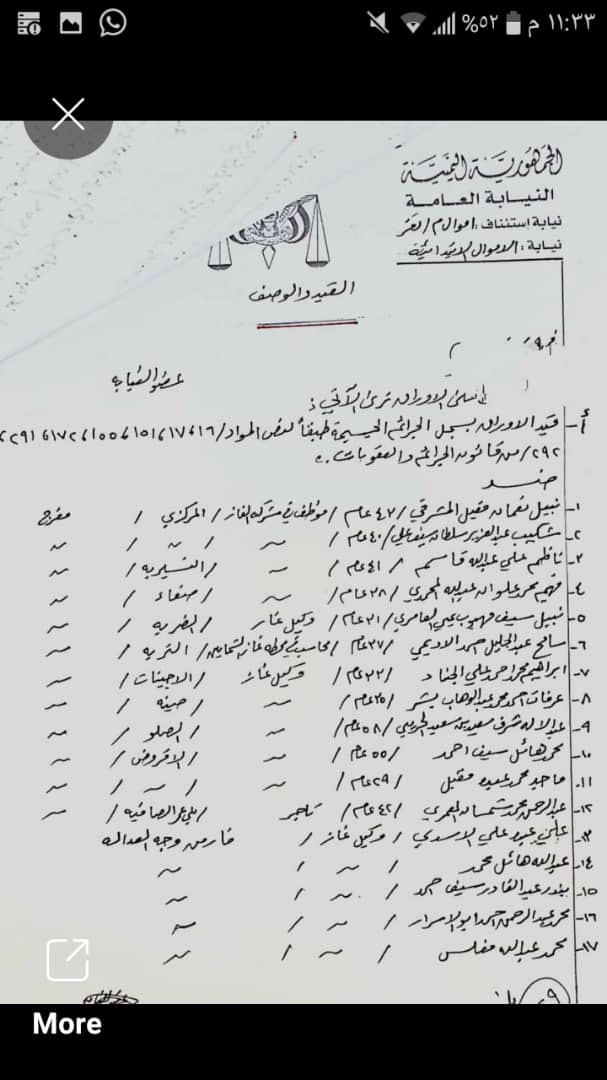 ١١:٣٣ م ٥٢%
الجمهورية اليمنية
النيابة العامة
نيابة إستئناف: اموال م/ تعز
نيابة: الاموال الابتدائية
القيد والوصف
عضو النيابة
الاوراق نرى الآتي:
أ- قيد الاوراق بسجل الجرائم الجسيمة طبقاً لنص المواد/١٦، ١٧، ١٥١، ١٥٥، ١٧٢، ٢٩١،
٢٩٢/ من قانون الجرائم والعقوبات.
ضـــد
١- نبيل نعمان مقبل المشرقي / ٤٧عام / موظف في شركة الغاز / المركزي / مفرج
٢- شكيب عبدالعزيز سلطان سيف علي / ٤٠عام / ~ / ~ / ~
٣- ناظم علي عبدالله قاسم / ٤١عام / ~ / ~
٤- فهيم محمد علوان عبدالله المحمدي / ٣٨عام / ~ / صنعاء / ~
٥- نبيل سيف مهيوب يحيى العامري / ٣١عام / وكيل غاز / الضربه / ~
٦- سامح عبدالجليل احمد الاديمي / ٢٧عام / محاسب في محطة غاز / التربه / ~
٧- ابراهيم محمد احمد علي الجناد / ٣٣عام / وكيل غاز / الاجينات / ~
٨- عرفات احمد محمد عبدالوهاب بشر / ٣٥عام / ~ / صينه / ~
٩- عبدالاله شرف سعيد بن سعيد / ٥٨عام / ~ / الصلو / ~
١٠- محمد هائل سيف احمد / ٥٥عام / ~ / الاقروض / ~
١١- ماجد محمد عبده مقبل / ٢٩عام / ~ / ~ / ~
١٢- عبدالرحمن محمد شمسان المعمري / ٤٢عام / تاجر / ~
١٣- علي عبده علي الاسدي / وكيل غاز / فار من وجه العداله
١٤- عبدالله هائل محمد / ~ / ~
١٥- بندر عبدالقادر سيف احمد / ~ / ~
١٦- محمد عبدالرحمن احمد ابو الاسرار / ~ / ~
١٧- محمد عبدالله مغلس / ~ / ~
More